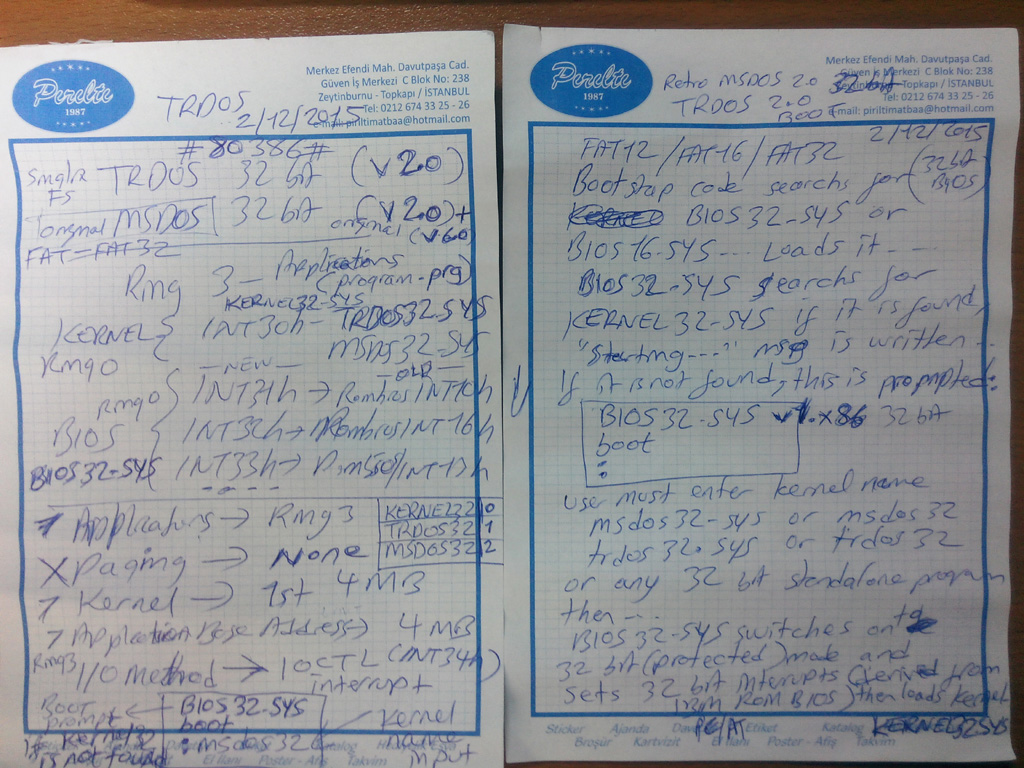 Perebie
1987
Merkez Efendi Mah. Davutpaşa Cad.
Güven İş Merkezi C Blok No: 238
Zeytinburnu - Topkapı / İSTANBUL
Tel: 0212 674 33 25 - 26
e-mail: piriltimatbaa@hotmail.com
TRDOS
2/12/2015
#80386#
Singlix FS
TRDOS 32 bit (v2.0)
original MSDOS 32 bit original (v2.0)+
(v6.0)
FAT=FAT32
Ring 3 - Applications
(program-prg)
KERNEL32-SYS
KERNEL { INT30h - TRDOS32-SYS
Ring 0 MSDOS32-SYS
-NEW- -OLD-
Ring 0 { INT31h → Rombios INT10h
BIOS INT32h → Rombios INT16h
BIOS32-SYS INT33h → Rombios INT13h
Applications → Ring 3
KERNEL32 0
TRDOS32 1
MSDOS32 2
X Paging → None
Kernel → 1st 4 MB
Application Base Address → 4 MB
Ring3 I/O method → IOCTL (INT34h)
interrupt
Boot prompt ← BIOS32-SYS
boot
: msdos32 kernel name input
if kernel32 is not found
Perebie
1987
Merkez Efendi Mah. Davutpaşa Cad.
Güven İş Merkezi C Blok No: 238
Zeytinburnu - Topkapı / İSTANBUL
Tel: 0212 674 33 25 - 26
e-mail: piriltimatbaa@hotmail.com
Retro MSDOS 2.0 32 bit
TRDOS 2.0
BOOT
2/12/2015
FAT12/FAT16/FAT32
Bootstap code searchs for (32bit BIOS)
KERNEL BIOS32-SYS or
BIOS16-SYS... Loads it...
BIOS32-SYS searchs for
KERNEL32-SYS if it is found,
"Starting..." msg is written..
If it is not found, this is prompted:
BIOS32-SYS v1. x86 32 bit
boot
:
user must enter kernel name
msdos32-sys or msdos32
trdos32.sys or trdos32
or any 32 bit standalone program
then...
BIOS32-SYS switches on to
32 bit (protected) mode and
sets 32 bit interrupts (derived from
IBM PC/AT ROM BIOS) then loads kernel
KERNEL32SYS
Sticker Ajanda Etiket Katalog
Broşür Kartvizit El İlanı Poster - Afiş Takvim